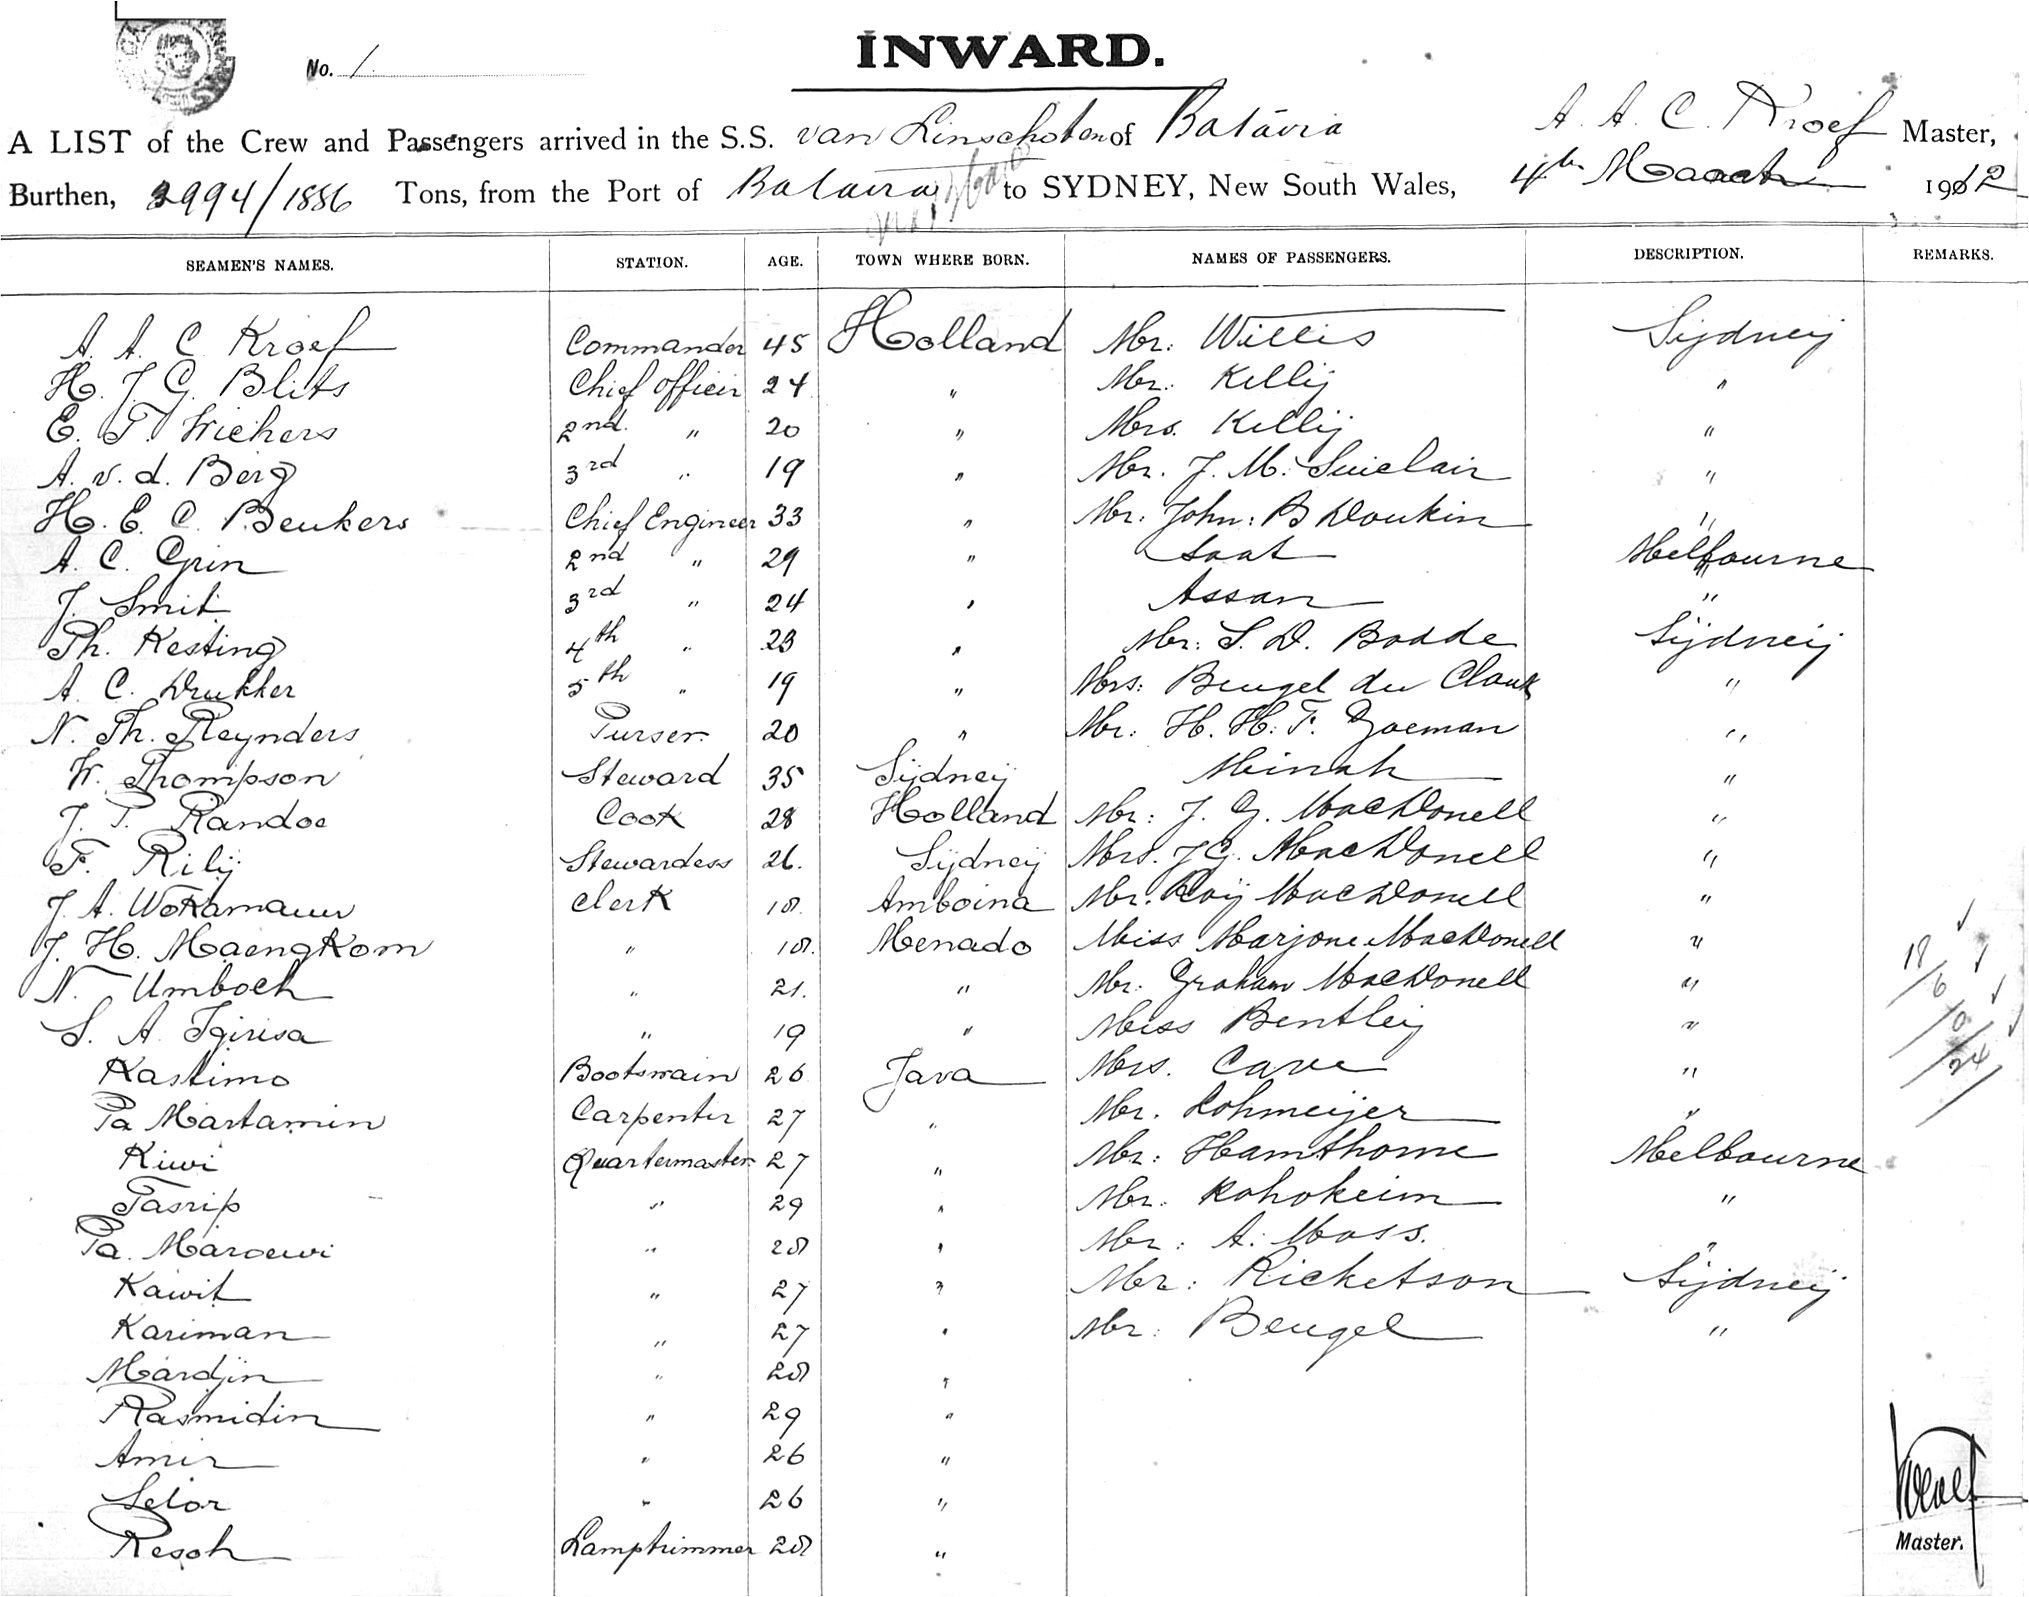 No. 1.
INWARD.
A LIST of the Crew and Passengers arrived in the S.S. van Linschoten of Batavia A. A. C. Kroef Master,
Burthen, 2994/1886 Tons, from the Port of Batavia to SYDNEY, New South Wales, 4th March 1912
SEAMEN'S NAMES. STATION. AGE. TOWN WHERE BORN. NAMES OF PASSENGERS. DESCRIPTION. REMARKS.
A. A. C. Kroef Commander 45 Holland Mr. Willis Sijdneij
H. J. G. Blits Chief officier 24 " Mr. Kellij "
E. T. Wichers 2nd. " 20 " Mrs. Kellij "
A. v. d. Berg 3rd " 19 " Mr. J. M. Sinclair "
H. E. C. Beukers Chief Engineer 33 " Mr: John: B Donkin "
A. C. Grin 2nd " 29 " Saat Melbourne
J. Smit 3rd " 24 " Assan "
Th. Kesting 4th " 23 " Mr: S. D. Bodde Sijdneij
A. C. Drukker 5th " 19 " Mrs: Beugel du "
N. Th. Reynders Purser 20 " Mr: H. H. F. Zoeman "
W. Thompson Steward 35 Sijdneij Minah "
J. P. Randoe Cook 28 Holland Mr: J. G. MacDonell "
F. Rilij Stewardess 26. Sijdneij Mrs. J G. MacDonell "
J. A. Clerk 18. Amboina Mr. Roij MacDonell "
J. H. MaengKom " 18. Menado Miss Marjorie MacDonell "
N. Umboch " 21. " Mr. Graham MacDonell "
S. A. " 19 " Miss Bentleij "
Kastimo Bootswain 26 Java Mrs. Cave "
Pa Martamin Carpenter 27 " Mr. Lohmeijer "
Kiwi Quartermaster 27 " Mr: Hamthorne Melbourne
Tasrip " 29 " Mr. "
Pa. Maroewi " 28 " Mr: A: Moss. "
Kawit " 27 " Mr: Ricketson Sijdneij
Kariman " 27 " Mr: Beugel "
Mardjin " 28 "
Rasmidin " 29 "
Amir " 26 "
Selor " 26 "
Resoh Lamptrimmer 28 "
18/6/0/24/
Kroef
Master.